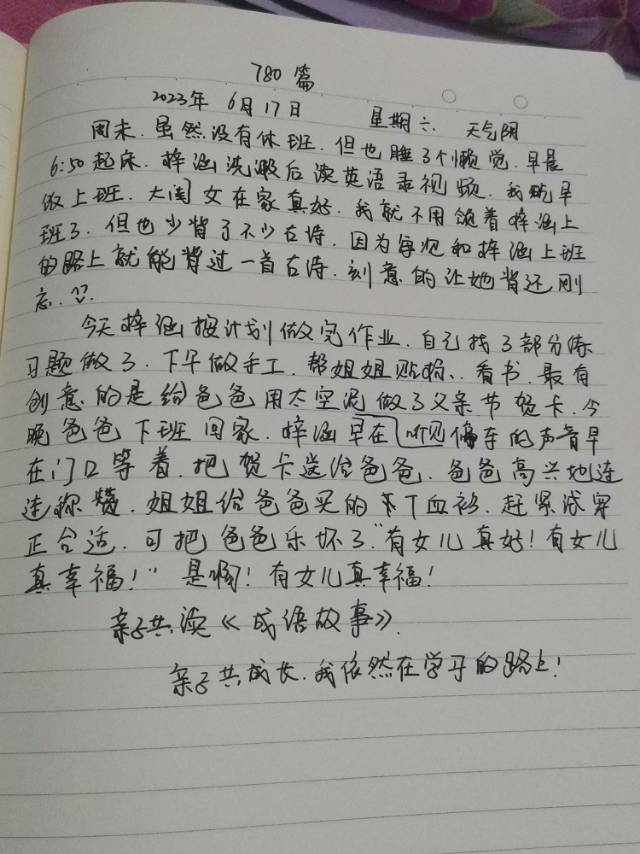 780篇
2023年 6月17日 星期六 天气阴
周末.虽然没有休班.但也睡了个懒觉.早晨
6:50起床.梓涵洗漱后读英语录视频.我晚早
饭上班.大闺女在家真好.我就不用领着梓涵上
班了.但也少背了不少古诗.因为每次和梓涵上班
的路上就能背过一首古诗.刻意的让她背还刚
忘.??
今天梓涵按计划做完作业.自己找了部分练
习题做了.下午做手工.帮姐姐贴.看书.最有
创意的是给爸爸用太空泥做了父亲节贺卡.今
晚爸爸下班回家.梓涵早在听见停车的声音早
在门口等着.把贺卡送给爸爸.爸爸高兴地连
连称赞.姐姐给爸爸买的T血衫.赶紧试穿
正合适.可把爸爸乐坏了."有女儿真好!有女儿
真幸福!"是啊!有女儿真幸福!
亲子共读《成语故事》.
亲子共成长.我依然在学习的路上!